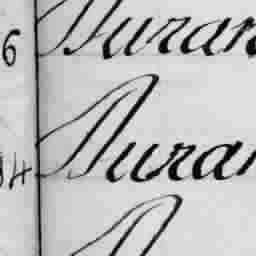 6 Duran
34 Duran